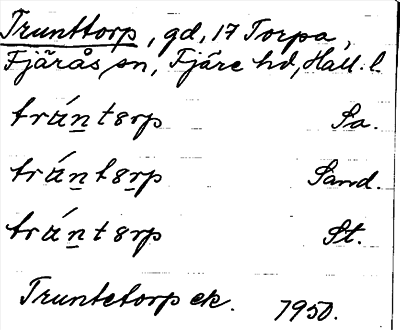 Trunttorp, gd, 17 Torpa,
Fjärås sn, Fjäre hd, Hall. l.
trán̲tørp Sa.
trán̲tør̲p Sand.
trán̲tørp St.
Truntetorp ek. 1950.